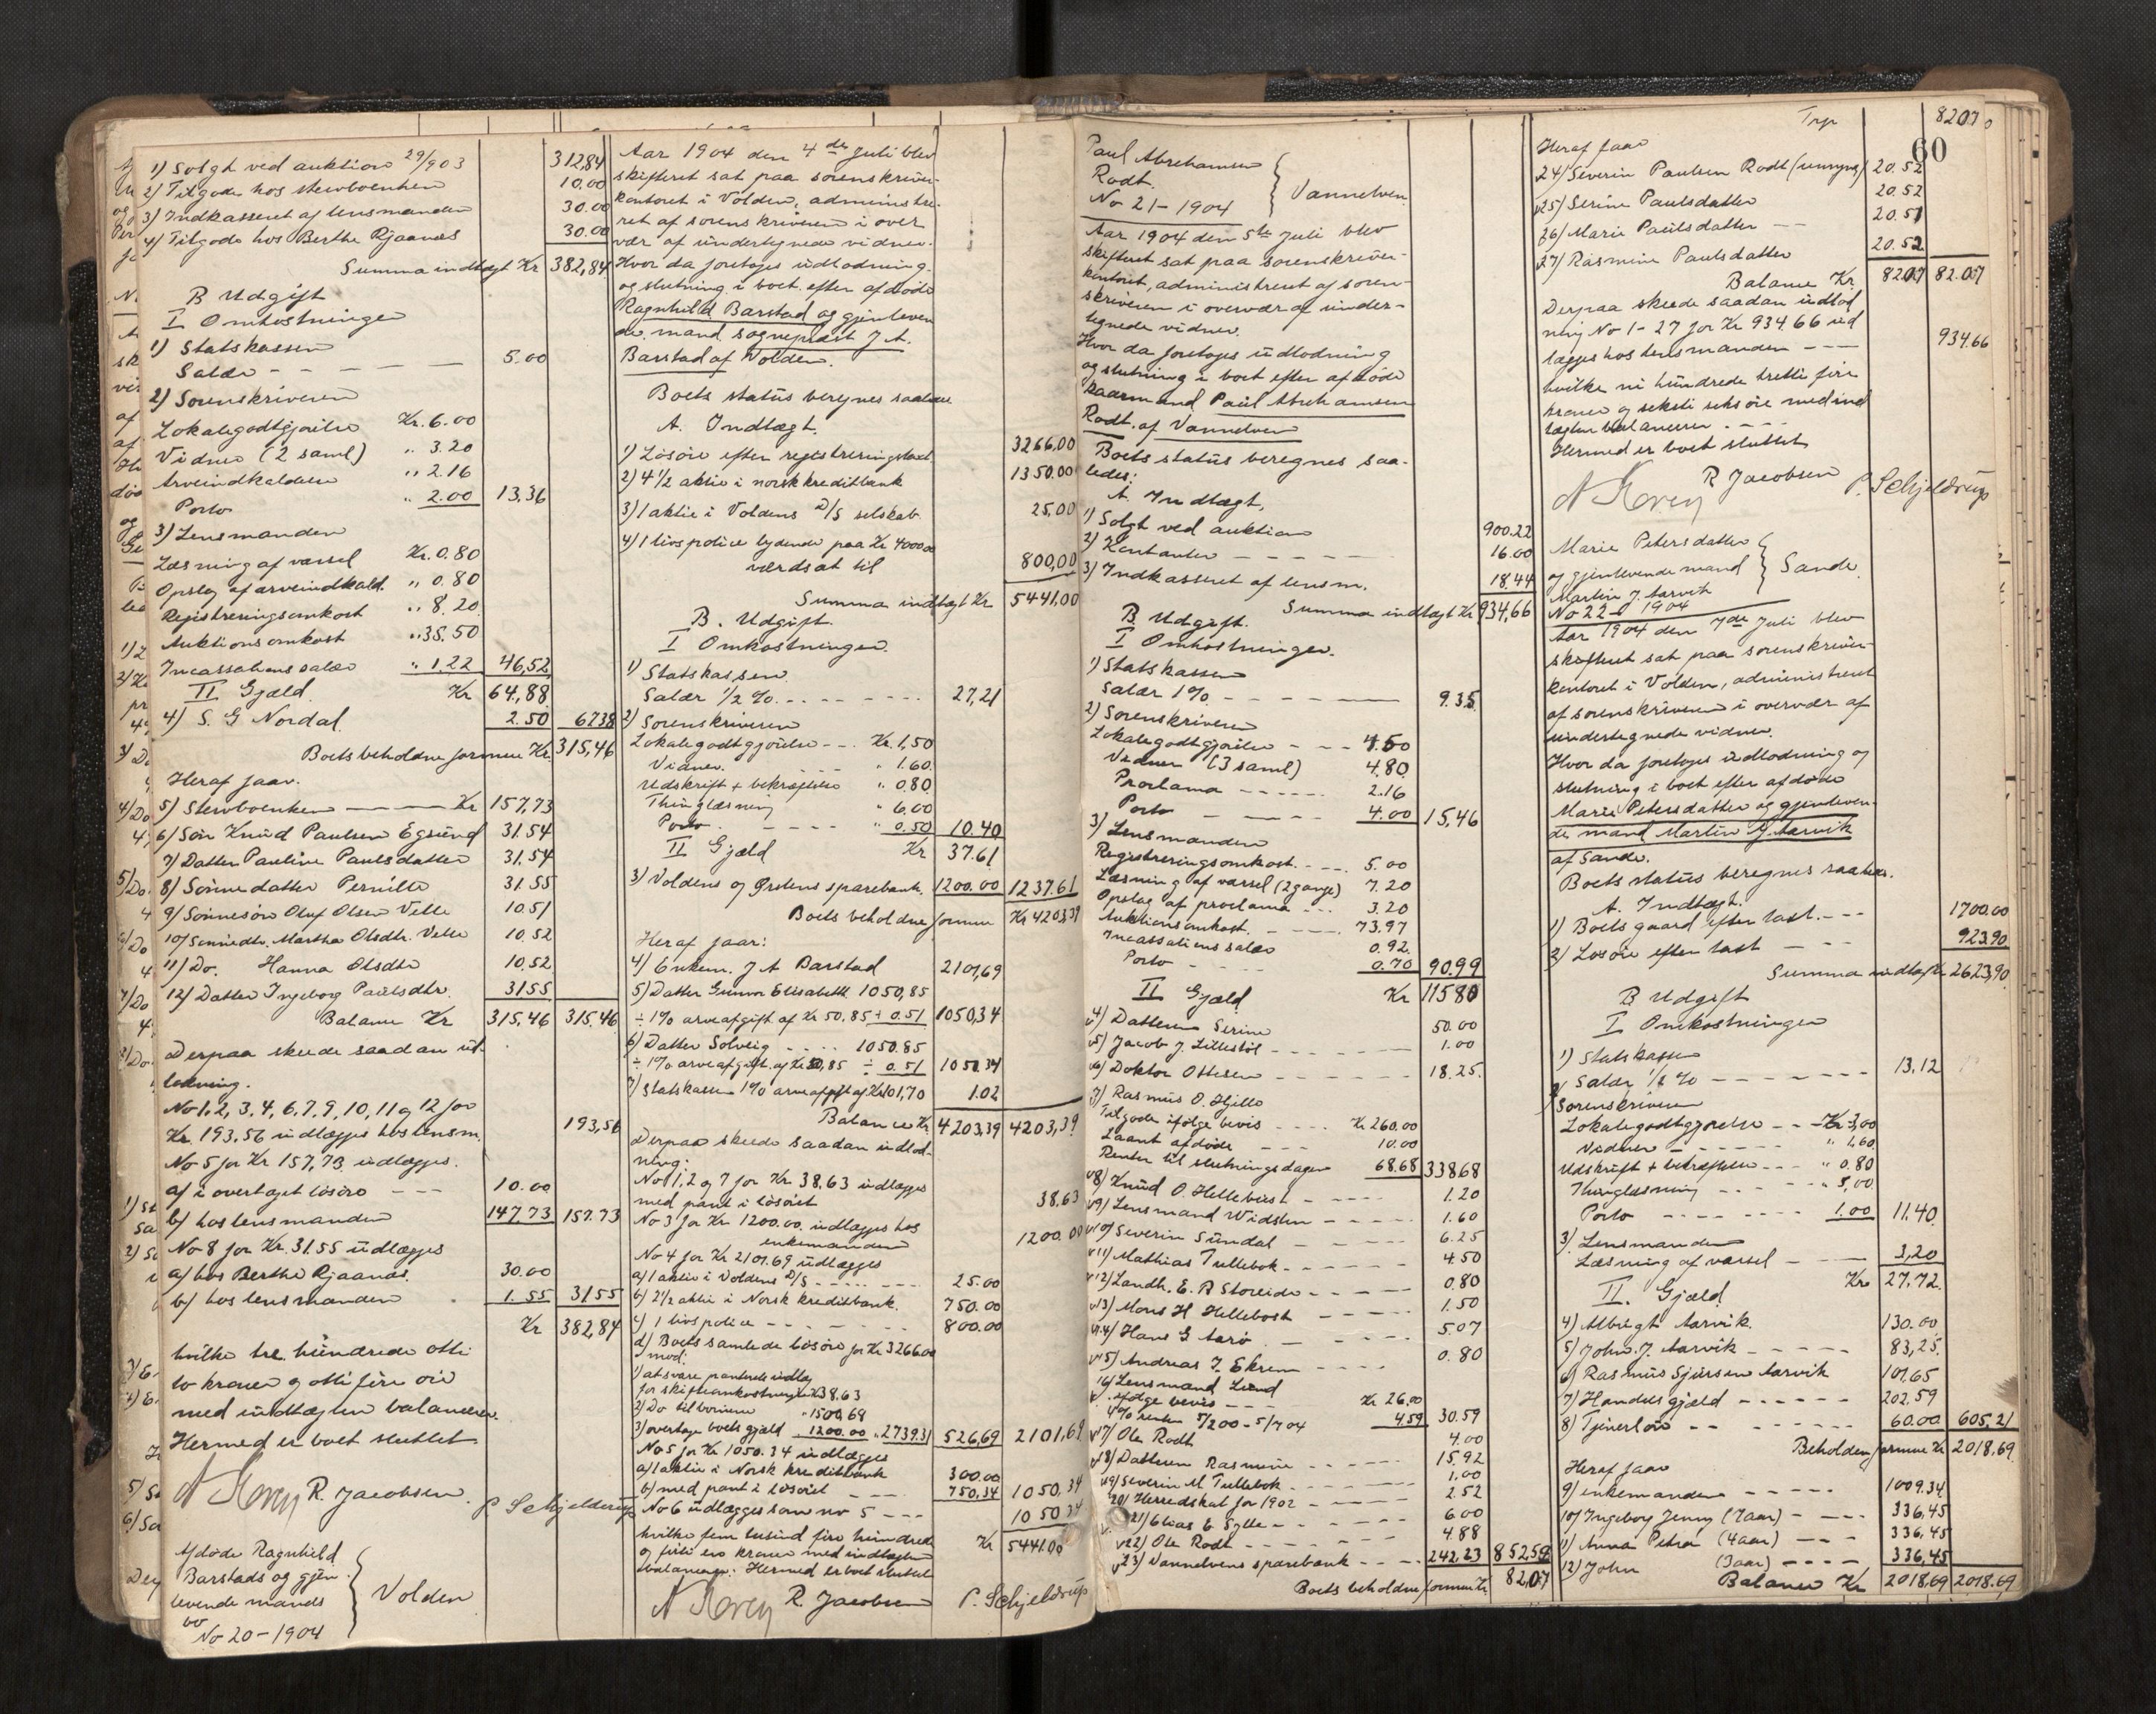 1) Solgt ved auktion 29/9 03 312,84
2) Tilgode hos stervboenken 10.00
3) Indkasseret af lensmanden 30.00
4) Tilgode hos Berthe Rjaanæs 30.00
Summa indtægt Kr 382,84
B Udgift
I Omkostninger
1) Statskassen
Salær 5.00
2) Sorenskriveren
Lokalegodtgjørelse Kr. 6.00
Vidner (2 saml) " 3.20
Arveindkaldelse " 2.16
Porto " 2.00 13,36
3) Lensmanden
Læsning af varsel Kr. 0.80
Opslag af arveindkald. " 0.80
Registreringsomkost " 8.20
Auktionsomkost " 35.50
Incassationssalær " 1.22 46,52
Kr 64,88
II Gjæld
4) S. G Nordal 2.50 67.38
Boets beholdne formue Kr. 315,46
Heraf faar.
5) Stervboenken Kr 157,73
6) Søn Knud Paulsen Egsund 31.54
7) Datter Pauline Paulsdatter 31.54
8) Sønnedatter Pernille 31.55
9) Sønnesøn Oluf Olsen Velle 10.51
10) Sønnedtr. Martha Olsdtr. Velle 10.52
11) Do. Hanna Olsdtr 10.52
12) Datter Ingeborg Paulsdtr. 31.55
Balance Kr 315,46 315,46
Derpaa skede saadan ud-
lodning.
No 1, 2, 3, 4, 6, 7, 9, 10, 11 og 12 for
Kr. 193,56 udlægges hos lensm. 193,56
No 5 for Kr 157,73 udlægges.
a) i overtaget løsøre 10.00
b) hos lensmanden 147,73 157.73
No 8 for Kr. 31.55 udlægges
a) hos Berthe Rjaanæs. 30.00
b) hos lensmanden 1.55 31.55
Kr 382,84
hvilke tre hundrede otti
to kroner og otti fire øre
med indtægten balancerer.
Hermed er boet sluttet
R. Jacobsen P. Schjelderup
Afdøde Ragnhild
Barstads og gjen
levende mands
bo
No 20 - 1904
Volden
Aar 1904 den 4de Juli blev
skifteret sat paa sorenskriver-
kontoret i Volden, administre-
ret af sorenskriveren i over
vær af undertegnede vidner.
Hvor da foretoges udlodning
og slutning i boet efter afdøde
Ragnhild Barstad og gjenleven
de mand sogneprest J. A.
Barstad af Volden.
Boets status beregnes saaledes
A. Indtægt.
1) Løsøre efter registreringstaxt 3266,00
2) 4 1/2 aktie i norsk kreditbank 1350.00
3) 1 aktie i Voldens D/S selskab 25,00
4) 1 livspolice lydende paa Kr 4000.00
værdsat til 800,00
Summa indtægt Kr 5441.00
B. Udgift.
I Omkostninger.
1) Statskassen.
Salær 1/2 % 27,21
2) Sorenskriveren
Lokalegodtgjørelse Kr. 1,50
Vidner. " 1.60
Udskrift + bekræftelse " 0.80
Thinglæsning " 6.00
Porto " 0.50 10.40
Kr 37.61
II Gjæld
3) Voldens og Ørstens sparebank. 1200.00 1237.61
Boets beholdne formue Kr 4203,39
Heraf faar:
4) Enkem. J A Barstad 2101,69
5) Datter Gunvor Elisabeth 1050,85
÷ 1% arveafgift af Kr 50,85 ÷ 0.51 1050,34
6) Datter Solveig 1050.85
÷ 1% arveafgift af Kr 50,85 ÷ 0.51 1050.34
7) Statskassen 1% arveafgift af Kr 101,70 1.02
Balance Kr 4203,39 4203,39
Derpaa skede saadan udlod-
ning:
No 1, 2 og 7 for Kr. 38.63 udlægges
med pant i løsøret 38.63
No 3 for Kr. 1200.00. udlægges hos
enkemanden 1200.00
No 4 for Kr 2101.69 udlægges
a) 1 aktie i Voldens D/S 25.00
b) 2 1/2 aktie i Norsk kreditbank. 750.00
c) 1 livspolice 800.00
d) Boets samlede løsøre for Kr 3266.00
mod:
1) at svare panterets udlæg
for skifteomkostninger Kr 38.63
2) Do til børnene " 1500,68
3) overtage boets gjæld 1200.00 " 2739.31 526,69 2101,69
No 5 for Kr 1050.34 udlægges
a) 1 aktie i Norsk kreditbank 300.00
b) med pant i løsøret 750,34 1050,34
No 6 udlægges som no 5 1050.34
Kr 5441.00
hvilke fem tusind fire hundrede
og firti en kroner med indtægten
balancerer. Hermed er boet sluttet
R. Jacobsen P. Schjelderup
Paul Abrehamsen
Rødt.
No 21 - 1904
Vannelven.
Aar 1904 den 5te Juli blev
skifteret sat paa sorenskriver-
kontoret, administreret af soren-
skriveren i overvær af under-
tegnede vidner.
Hvor da foretoges udlodning
og slutning i boet efter afdøde
kaarmand Paul Abrehamsen
Rødt. af Vannelven
Boets status beregnes saa-
ledes:
A. Indtægt,
1) Solgt ved auktion 900.22
2) Kontanter 16.00
3) Indkasseret af lensm. 18.44
Summa indtægt Kr 934,66
B Udgift.
I Omkostninger.
1) Statskassen
Salær 1% 9.35
2) Sorenskriveren
Lokalegodtgjørelse 4.50
Vidner (3 saml) 4.80
Proclama 2.16
Porto 4.00 15,46
3) Lensmanden
Registreringsomkost. 5.00
Læsning af varsel (2 gange) 7.20
Opslag af proclama 3.20
Auktionsomkost. 73.97
Incassationssalær 0.92
Porto 0.70 90.99
Kr 115.80
II Gjæld
4) Datteren Serine 50.00
5) Jacob J. Lillestøl 1.00
6) Doktor Ottesen 18.25.
7) Rasmus O. Hjelle
Tilgode ifølge bevis Kr. 260.00
Laant afdøde 10.00
Renter til slutningsdagen 68.68 338.68
8) Knud O. Hellebust 1.20
9) Lensmand Widsten 1.60
10) Severin Sundal 6.25
11) Mathias Tullebok 4.50
12) Landh. E. R Storeide 0.80
13) Mons H Hellebost 1.50
14) Hans G Aarø 5.07
15) Andreas J. Ekrem 0.80
16) Lensmand Lund
ifølge bevis Kr 26.00
4% renter 5/2 00 - 5/7 04 4.59 30.59
17) Ole Rødt 4.00
18) Datteren Rasmine 15,92
19) Severin M Tullebok 1,00
20) Herredskat for 1902 2.52
21) Elias E Sylte 6.00
22) Ole Rødt 4.88
23) Vannelvens sparebank 242,23 852.59
Boets beholdne formue Kr. 82,07
Trp 82.07
60
Heraf faar
24) Severin Paulsen Rødt (umynd) 20.52
25) Serine Paulsdatter 20.52
26) Marie Paulsdatter 20.51
27) Rasmine Paulsdatter 20.52
Balance Kr. 82.07 82.07
Derpaa skede saadan udlod
ning No 1 - 27 for Kr 934.66 ud
lægges hos lensmanden 934.66
hvilke ni hundrede tretti fire
kroner og seksti seks øre med ind
tægten balancerer
Hermed er boet sluttet
R Jacobsen P. Schjelderup
Marie Petersdatter
og gjenlevende mand
Martin J. Aarvik
No 22 - 1904
Sande.
Aar 1904 den 7de Juli blev
skifteret sat paa sorenskriver-
kontoret i Volden, administreret
af sorenskriveren i overvær af
undertegnede vidner.
Hvor da foretoges udlodning og
slutning i boet efter afdøde
Marie Petersdatter og gjenleven-
de mand Martin J. Aarvik
af Sande.
Boets status beregnes saaledes.
A. Indtægt.
1) Boets gaard efter taxt. 1700.00
2) Løsøre efter taxt 923.90
Summa indtægt Kr 2623,90
B Udgift
I Omkostninger
1) Statskassen
Salær 1/2 % 13,12
2) Sorenskriveren
Lokalegodtgjørelse Kr 3,00
Vidner " 1,60
Udskrift + bekræftelse " 0.80
Thinglæsning " 5,00
Porto 1.00 11.40
3) Lensmanden
Læsning af varsel 3,20
Kr 27.72
II. Gjæld
4) Albregt Aarvik. 130.00
5) John. J. Aarvik 83,25.
6) Rasmus Sjursen Aarvik 101,65
7) Handelsgjæld 202.59
8) Tjenerløn 60.00 605,21
Beholden formue Kr 2018,69
Heraf faar
9) enkemanden 1009.34
10) Ingeborg Jenny (7 aar) 336,45
11) Anna Petra (4 aar) 336,45
12) John (3 aar) 336,45
Balance Kr 2018,69 2018.69